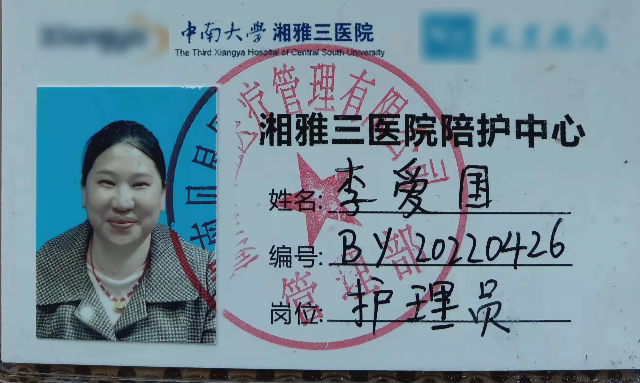 中南大学湘雅三医院
The Third Xiangya Hospital of Central South University
湘雅三医院陪护中心
姓名:李爱国
编号:BY20220426
岗位:护理员
疗管理有限
管理部